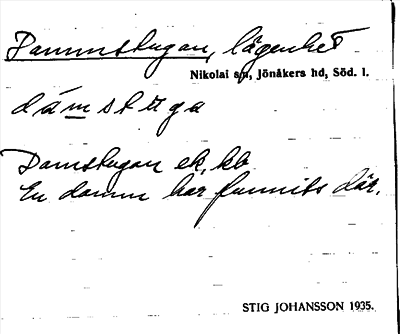 Dammstugan, lägenhet
Nikolai sn, Jönåkers hd, Söd. l.
dámstuga
Damstugan ek, kb
En damm har funnits där.
STIG JOHANSSON 1935.